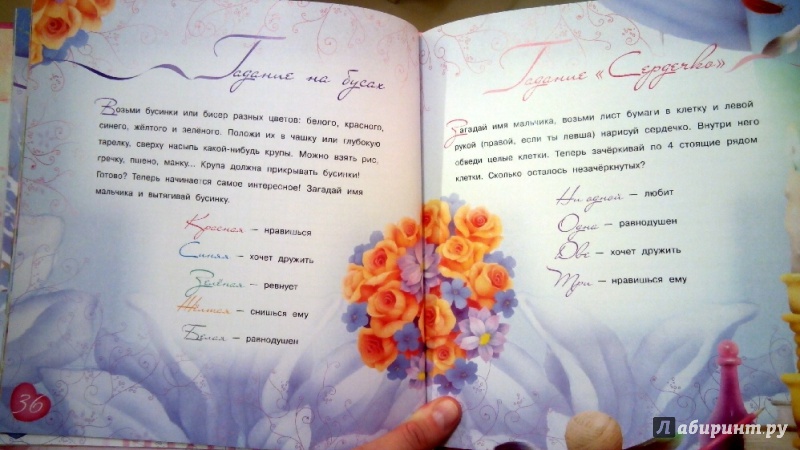 Гадание на бусах
Возьми бусинки или бисер разных цветов: белого, красного,
синего, жёлтого и зелёного. Положи их в чашку или глубокую
тарелку, сверху насыпь какой-нибудь крупы. Можно взять рис,
гречку, пшено, манку... Крупа должна прикрывать бусинки!
Готово? Теперь начинается самое интересное! Загадай имя
мальчика и вытягивай бусинку.
Красная — нравишься
Синяя — хочет дружить
Зелёная — ревнует
Жёлтая — снишься ему
Белая — равнодушен
36
Гадание «Сердечко»
Загадай имя мальчика, возьми лист бумаги в клетку и левой
рукой (правой, если ты левша) нарисуй сердечко. Внутри него
обведи целые клетки. Теперь зачёркивай по 4 стоящие рядом
клетки. Сколько осталось незачёркнутых?
Ни одной — любит
Одна — равнодушен
Две — хочет дружить
Три — нравишься ему
Лабиринт.ру